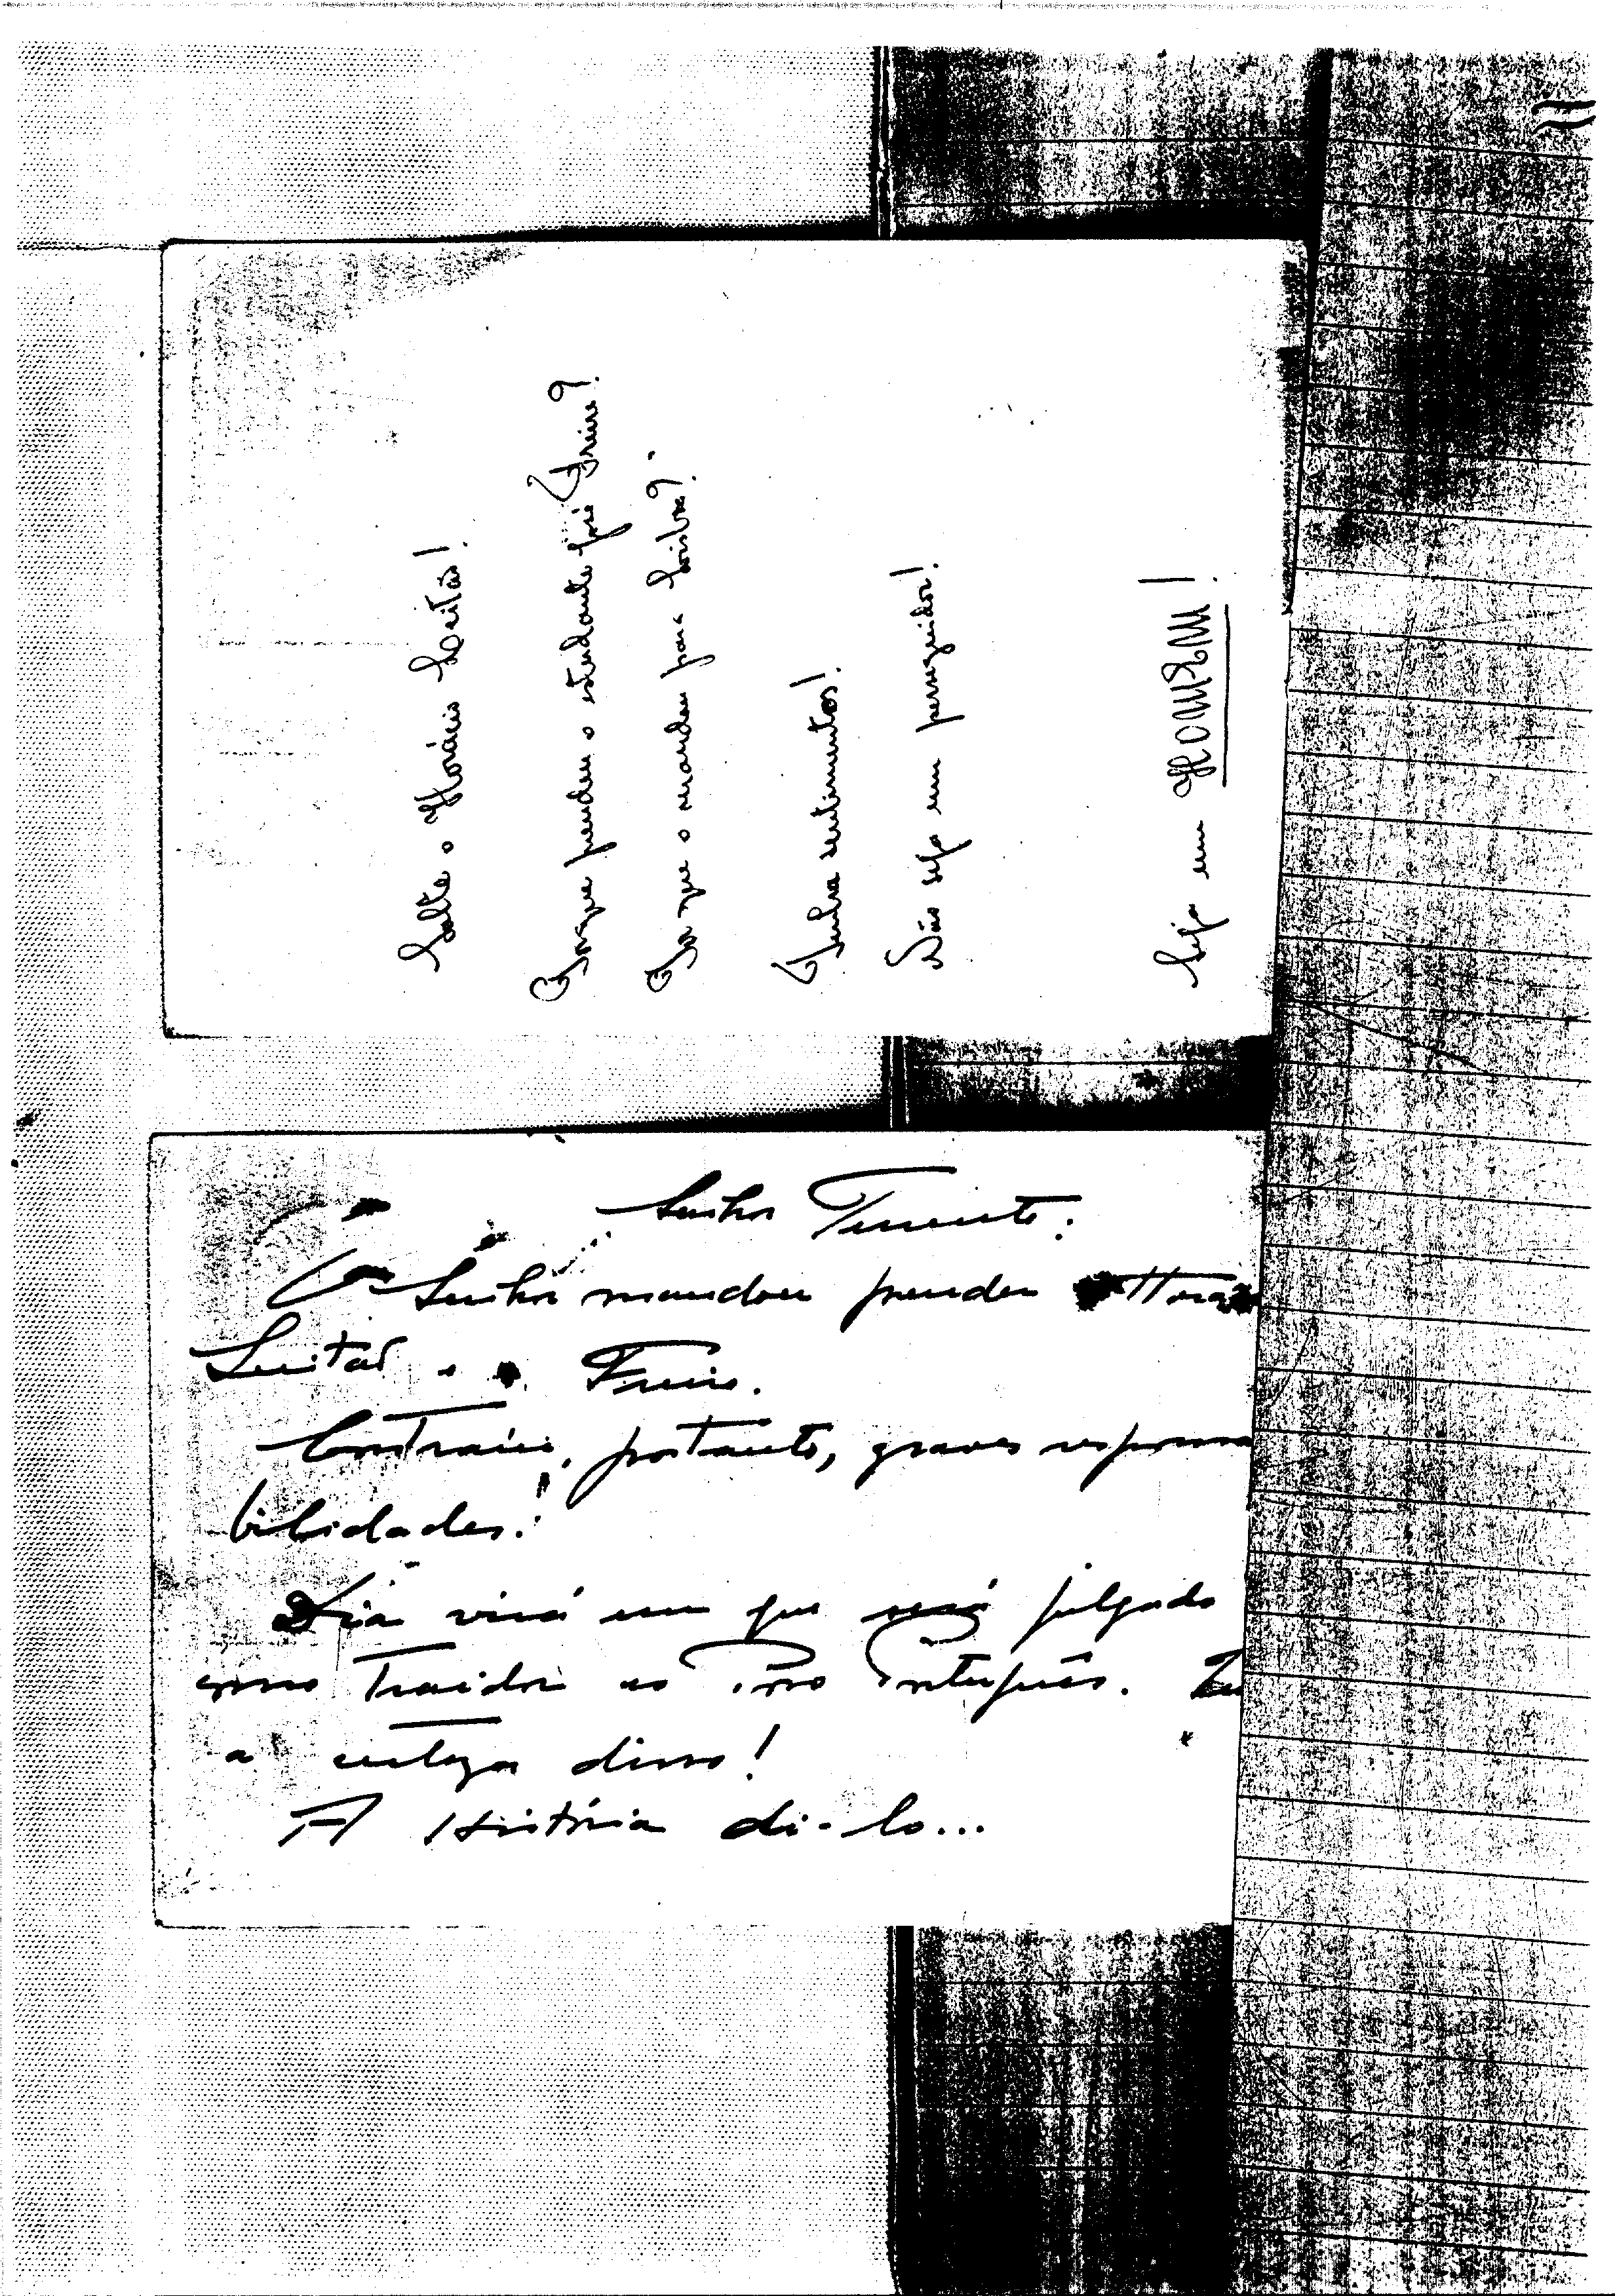 Solte o Horácio Leitão!
Porque prendeu o estudante José Freire?
Para que o mandou para Lisboa?
Tenha sentimentos!
Não seja um perseguidor!
Seja um HOMEM!
Senhor Tenente:
O Senhor mandou prender
Leitão e o Freire.
Contraiu, portanto, graves responsa
bilidades!
Dia virá em que será julgado
como Traidor ao Povo Português.
a certeza disso!
A História di-lo...